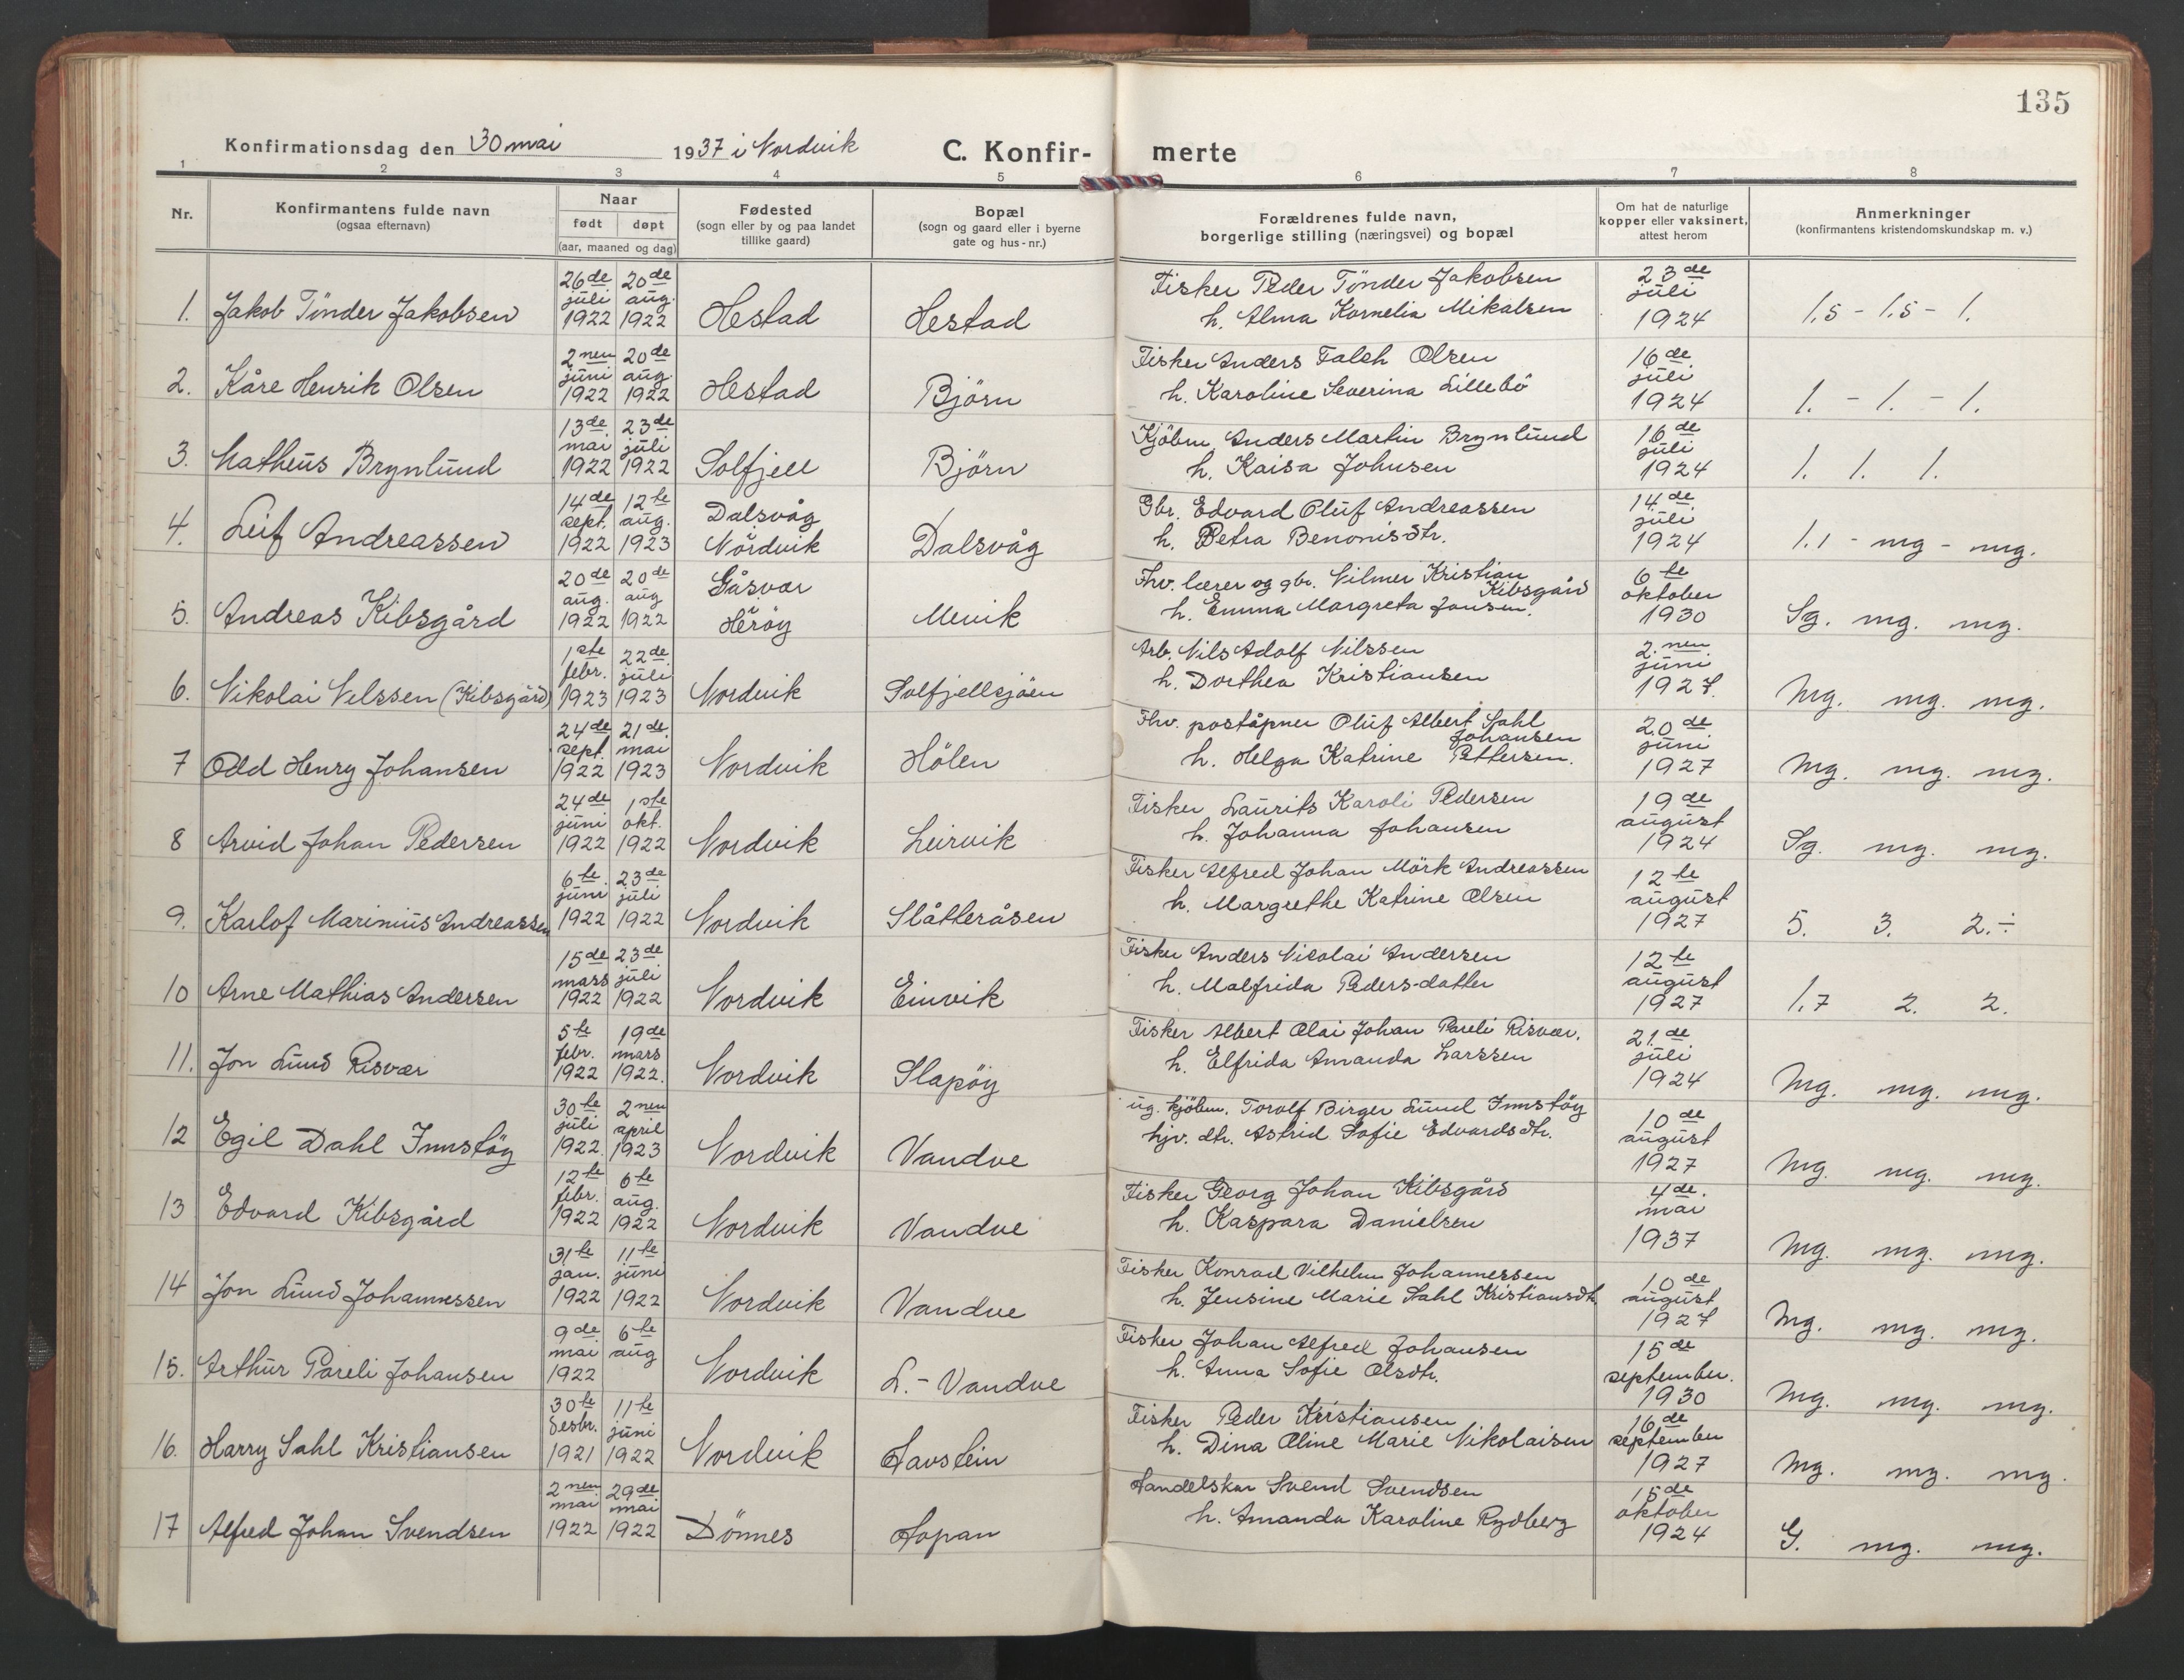 135
Konfirmationsdag den 30 mai 1937 i Nordvik
C. Konfir- merte
1 2 3 4 5 6 7 8
Nr.
Konfirmantens fulde navn
(ogsaa efternavn)
Naar
født døpt
(aar, maaned og dag)
Fødested
(sogn eller by og paa landet
tillike gaard)
Bopæl
(sogn og gaard eller i byerne
gate og hus-nr.)
Forældrenes fulde navn,
borgerlige stilling (næringsvei) og bopæl
Om hat de naturlige
kopper eller vaksinert,
attest herom
Anmerkninger
(konfirmantens kristendomskundskap m. v.)
1. Jakob Tönder Jakobsen
26de juli 1922
20de aug. 1922
Hestad
Hestad
Fisker Peder Tönder Jakobsen
h. Alma Kornelia Mikalsen
23de juli 1924
1.5 - 1.5 - 1.
2. Kåre Henrik Olsen
2nen juni 1922
20de aug. 1922
Hestad
Björn
Fisker Anders Falch Olsen
h. Karoline Severina Lillebö
16de juli 1924
1. - 1. - 1.
3. Matheus Brynlund
13de mai 1922
23de juli 1922
Solfjell
Björn
Kjöbm. Anders Martin Brynlund
h. Kaisa Johnsen
16de juli 1924
1. 1. 1.
4. Leif Andreassen
14de sept. 1922
12te aug. 1923
Dalsvåg
Nordvik
Dalsvåg
Gbr. Edvard Oluf Andreassen
h. Petra Benonisdtr.
14de juli 1924
1.1 - mg - mg.
5. Andreas Kibsgård
20de aug. 1922
20de aug 1922
Gåsvær
Heröy
Mevik
Fhv. lærer og gbr. Vilmer Kristian
Kibsgård
h. Emma Margreta Jansen.
6te oktober 1930
Sg. mg. mg.
6. Nikolai Nilssen (Kibsgård)
1ste febr. 1923
22de juli 1923
Nordvik
Solfjellsjöen
Arb. Nils Adolf Nilssen
h. Dorthea Kristiansen
2.nen juni 1927.
Mg. mg. mg.
7 Odd Henry Johansen
24de sept. 1922
21de. mai 1923
Nordvik
Hölen
Fhv. poståpner Oluf Albert Dahl
Johansen
h. Helga Katrine Pettersen.
20de juni 1927
Mg. mg. mg.
8 Arvid Johan Pedersen
24de juni 1922
1ste okt. 1922
Nordvik
Leirvik
Fisker Laurits Karoli Pedersen
h. Johanna Johansen
19de august 1924
Sg. mg. mg.
9. Karlof Marinius Andreassen
6te juni 1922
23de juli 1922
Nordvik
Slåtteråsen
Fisker Alfred Johan Mörk Andreassen
h. Margrethe Katrine Olsen
12te august 1927
5. 3. 2.÷
10 Arne Mathias Andersen
15de mars 1922
23de juli 1922
Nordvik
Einvik
Fisker Anders Nicolai Andersen
h. Malfrida Peders-datter
12te august 1927
1.7 2. 2.
11. Jon Lund Risvær
5te febr. 1922
19de mars 1922.
Nordvik
Slapöy
Fisker Albert Olai Johan Pareli Risvær.
h. Elfrida Amanda Larssen
21.de juli 1924
Mg. mg. mg.
12 Egil Dahl Innstöy
30te juli 1922.
2nen april 1923
Nordvik
Vandve
ug. kjöbm. Torolf Birger Lund Innstöy
hjv. dtr. Astrid Sofie Edvardsdtr.
10de august 1927
Mg. mg. mg.
13 Edvard Kibsgård
12te febr. 1922
6te aug. 1922
Nordvik
Vandve
Fisker Georg Johan Kibsgård
h. Kaspara Danielsen
4de. mai 1937
Mg. mg. mg.
14 Jon Lund Johannessen
31te jan. 1922
11te juni 1922
Nordvik
Vandve
Fisker Konrad Vilhelm Johannessen
h. Jensine Marie Dahl Kristiansdtr.
10de august 1927
Mg. mg. mg.
15. Arthur Pareli Johansen
9de mai 1922
6te aug
Nordvik
L.- Vandve
Fisker Johan Alfred Johansen
h. Anna Sofie Olsdtr.
15de september. 1930
Mg. mg. mg.
16. Harry Dahl Kristiansen
30te desbr. 1921
11te juni 1922
Nordvik
Havstein
Fisker Peder Kristiansen
h. Dina Oline Marie Nikolaisen
16de september 1927
Mg. mg. mg.
17 Alfred Johan Svendsen
2nen mai 1922
29de mai 1922
Dönnes
Hopan
Handelskar Svend Svendsen
h. Amanda Karoline Rydberg
15de oktober 1924
G. mg. mg.